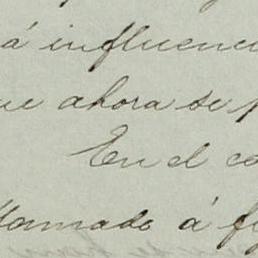 á influenci
ue ahora se p
En el co
llamado á f